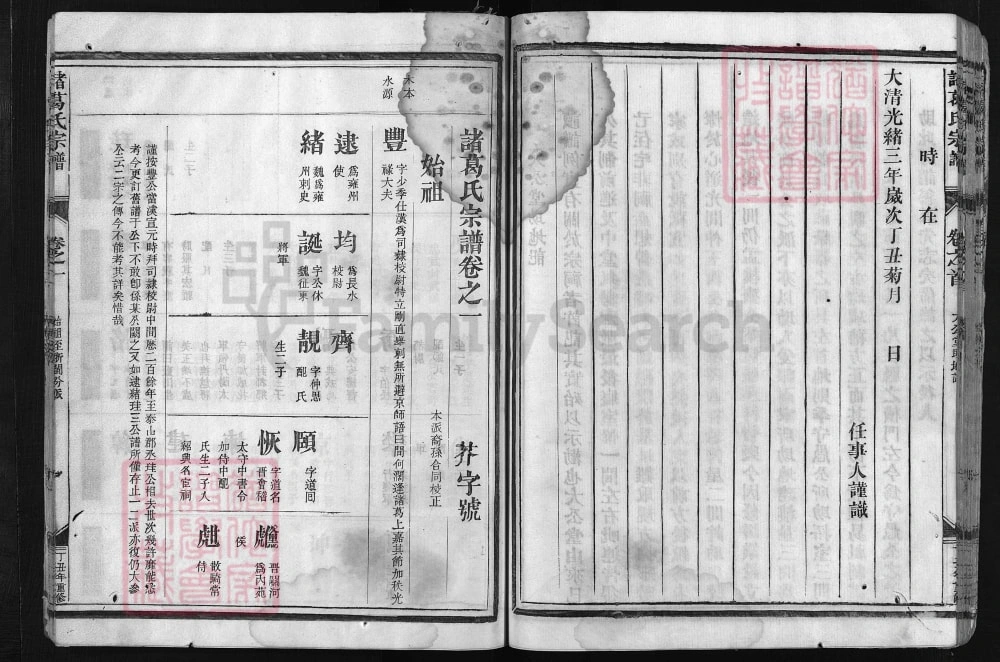 時在
大清光緒三年歲次丁丑菊月 日
任事人謹識
諸葛氏宗譜 卷之首
諸葛氏宗譜卷之一 芥字號
木本
水源
始祖 本派裔孫合同校正
豐 字少季仕漢爲司隸校尉特立剛直舉刺無所避京師語曰間何闊逢諸葛上嘉其節加秩光
祿大夫
逮 爲雍州
使
緒 魏爲雍
州刺史
均 爲長水
校尉
誕 字公休
魏征東
將軍
齊
靚 字仲思
配 氏
生二子
頤 字道回
恢 字道名
晋會稽
太守中書令
加侍中配
氏生二子入
紹興名宦祠
爲內苑
侯
散騎常
侍
謹按豐公當漢宣元時拜司隸校尉中間歷二百餘年至泰山郡丞珪公相去世次幾許靡能悉
考今更訂舊譜于公下不敢卽係某公闕之又如逮緒珪三公譜所僅存止一二派亦復仍大參
公云二宗之傳今不能考其詳矣惜哉
諸葛氏宗譜 卷之一 始祖至浙閩分派 丁丑年重修
FamilySearch